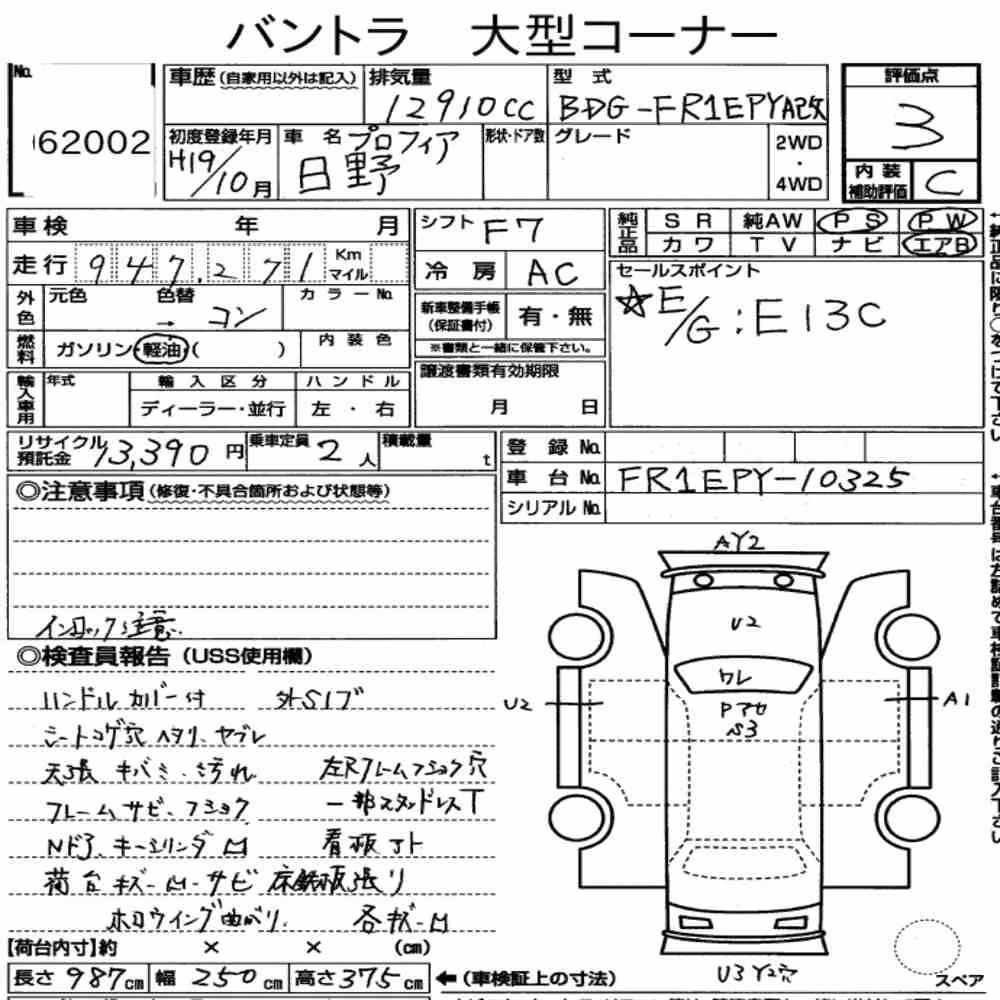 バントラ 大型コーナー
No. 62002
車歴(自家用以外は記入)
排気量 12910cc
型式 BDG-FR1EPYA改
評価点 3
内装補助評価 C
初度登録年月 H19/10月
車名 プロフィア 日野
形状・ドア数
グレード
2WD・4WD
車検 年 月
走行 947,271 Km マイル
外色 元色 色替 → コン カラーNo.
燃料 ガソリン・軽油・( ) 内装色
輸入車用 年式 輸入区分 ハンドル
ディーラー・並行 左・右
シフト F7
冷房 AC
新車整備手帳(保証書付) 有・無
※書類と一緒に保管下さい。
譲渡書類有効期限
月 日
純正品 SR 純AW PS PW
カワ TV ナビ エアB
セールスポイント
☆E/G:E13C
リサイクル預託金 13,390円 乗車定員 2人 積載量 t
登録No.
車台No. FR1EPY-10325
シリアルNo.
◎注意事項(修復・不具合箇所および状態等)
インロック注意.
◎検査員報告(USS使用欄)
ハンドルカバー付 外S1ブ
シートコゲ穴 ヘタリ、ヤブレ
天張 キバミ・汚れ 左Rフレームフショク穴
フレームサビ、フショク 一部スタッドレスT
キーシリンダ凹 看板アト
荷台キズー凹ーサビ 床鉄板張り
ホロウイング曲がり. 各キズー凹
【荷台内寸】約 × × (cm)
長さ 987cm 幅 250cm 高さ 375cm ←(車検証上の寸法)
AY2
U2
ワレ
Pアセ
S3
U2
A1
U3 Y2穴
スペア